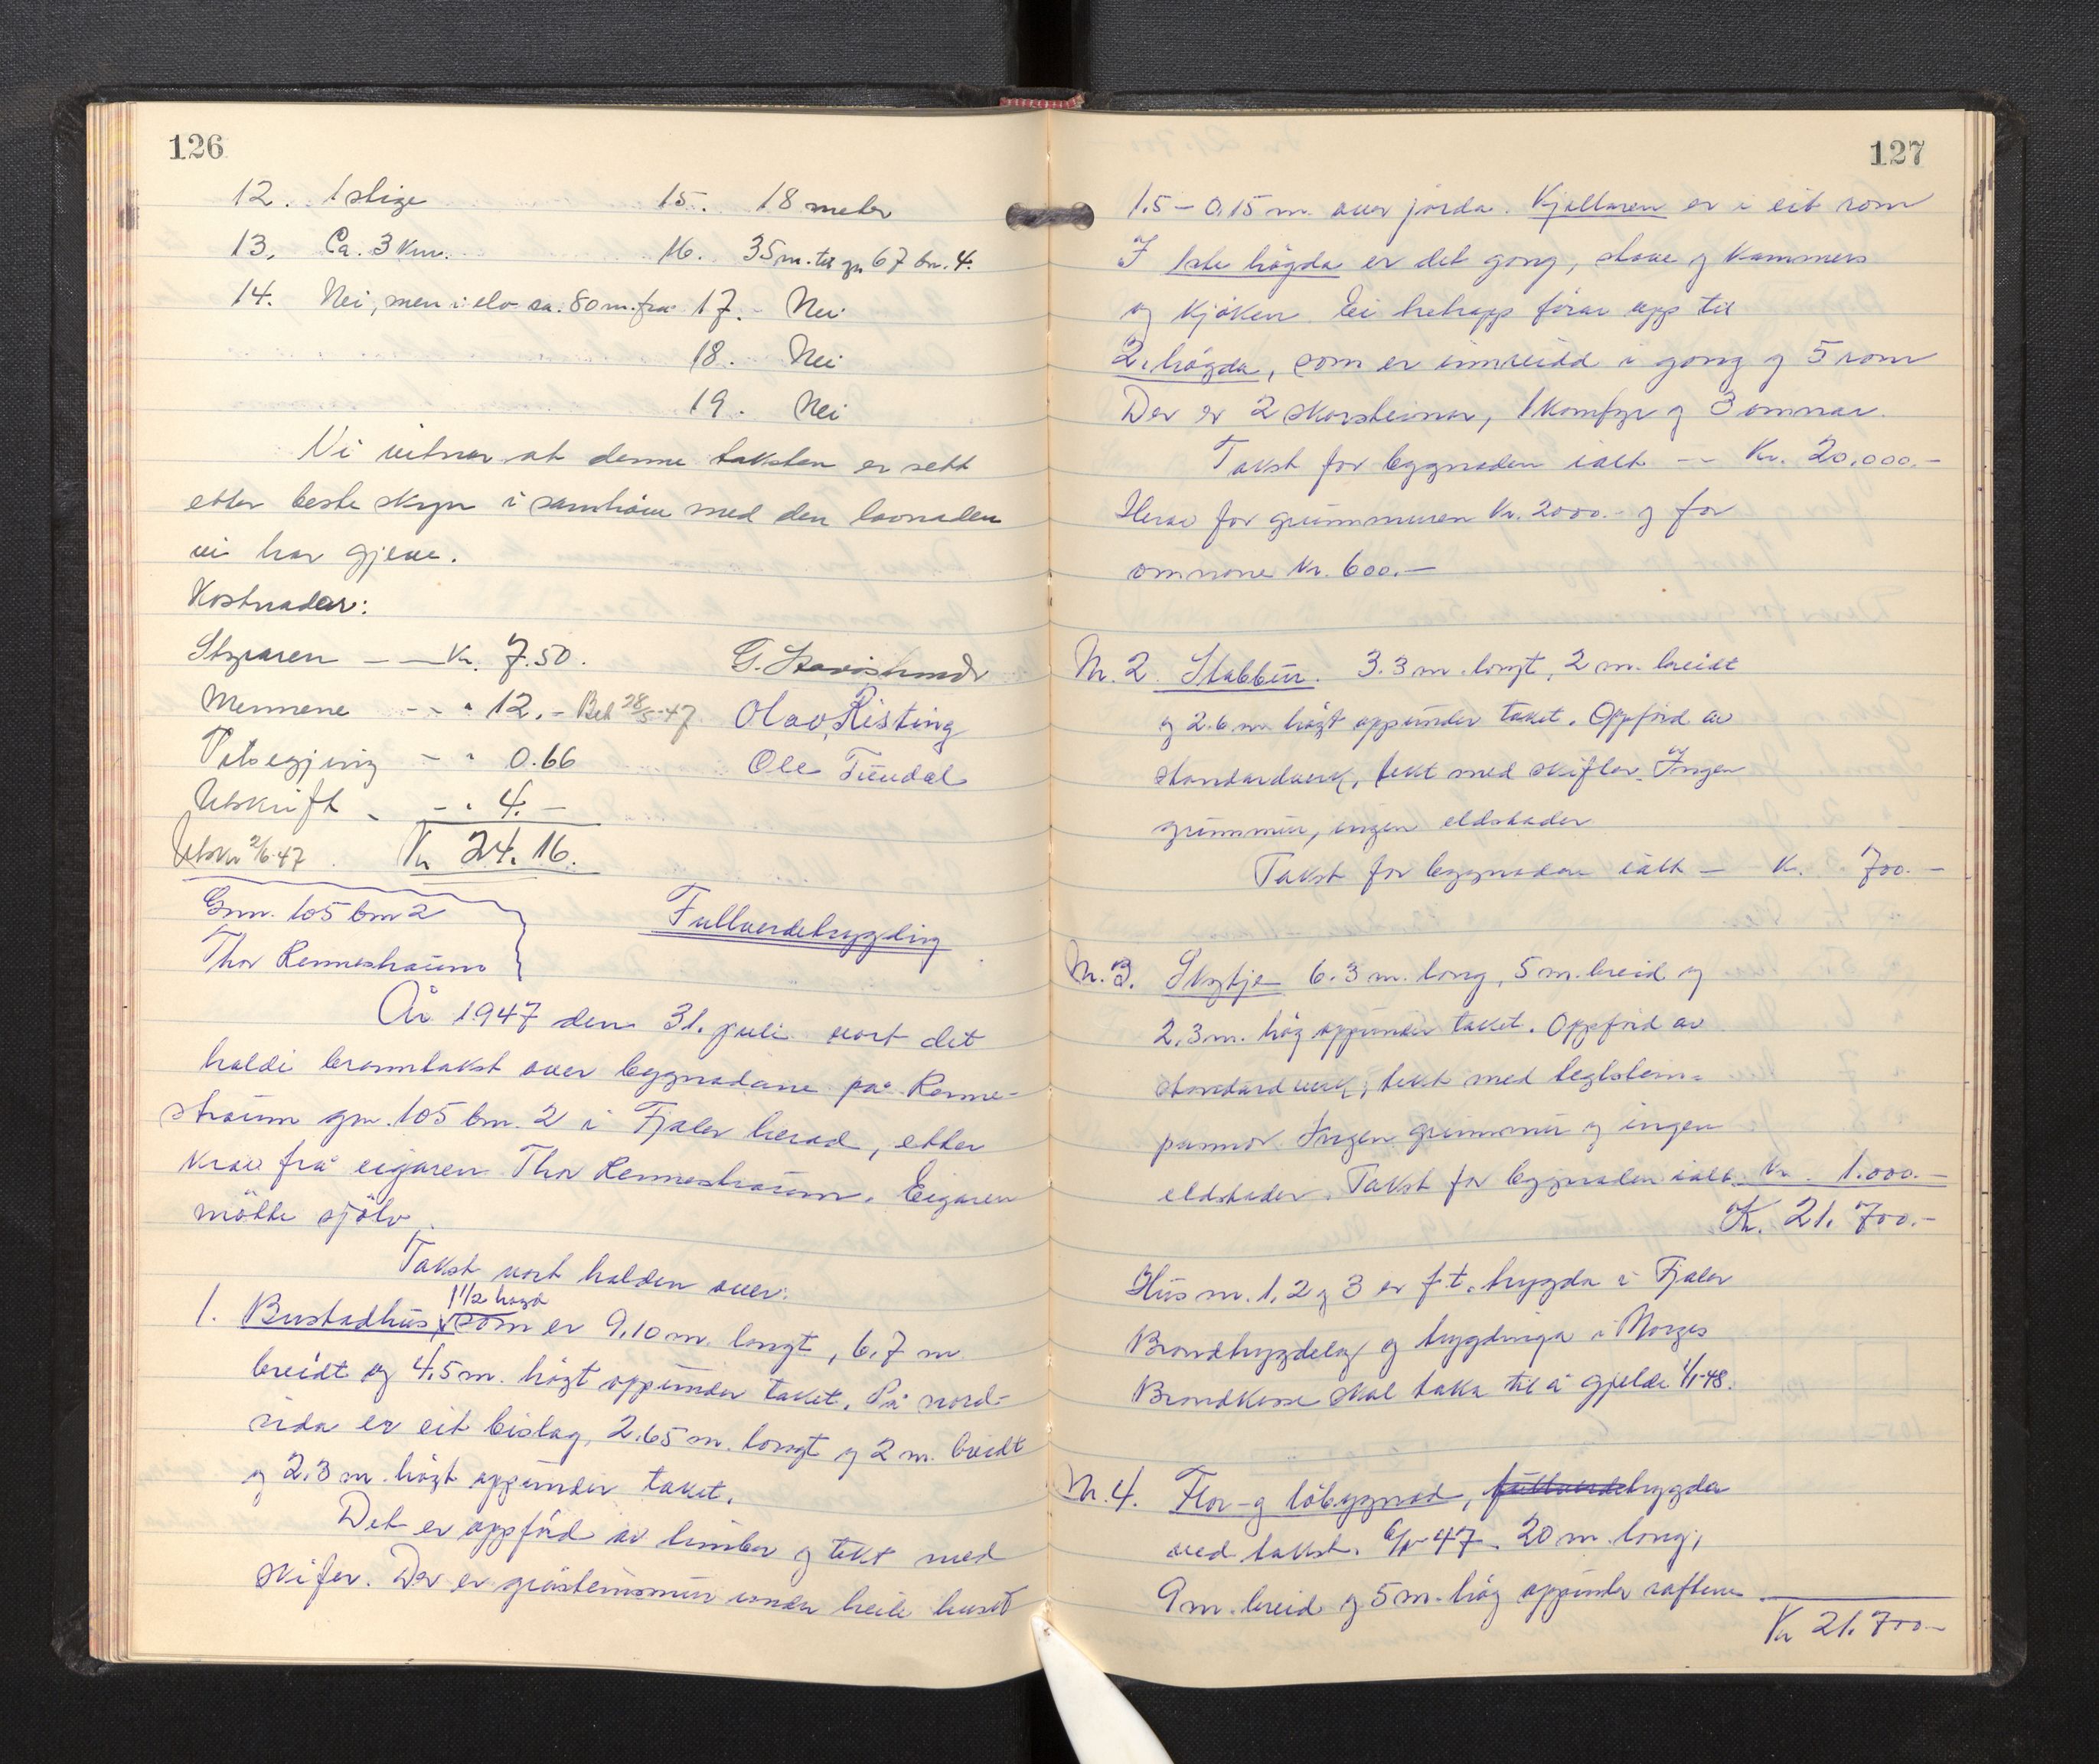 126
12. 1 stige 15. 18 meter
13. Ca. 3 km. 16. 35 m. til gn 67 bn. 4.
14. Nei, men i elv ca. 80 m. frå 17. Nei
18. Nei
19. Nei
Vi vitnar at denne taksten er sett
etter beste skyn i samhøve med den lovnaden
vi har gjeve.
Kostnader:
Styraren - - Kr. 7.50.
Mennene - - " 12.- Bet 28/5-47 Olav Risting
Utsegjing - " 0.66 Ole Tundal
Utskrift - - " 4.-
Utskr 2/6-47 Kr 24.16.
Gnr. 105 bn 2 Fullverdetrygding
Thor Rennestraum
År 1947 den 31. juli vart det
haldi branntakst over bygnadane på Renne-
straum gn. 105 bn. 2 i Fjaler herad, etter
krav frå eigaren Thor Rennestraum. Eigaren
møtte sjølv.
Takst vart halden over:
1 1/2 høgd
1. Bustadhus, som er 9,10 m. langt, 6,7 m
breidt og 4,5 m. høgt oppunder taket. På nord-
sida er eit bislag, 2,65 m. langt og 2 m. breidt
og 2,3 m. høgt oppunder taket.
Det er oppförd av timber og tekt med
skifer. Der er gråsteinsmur under heile huset
127
1,5 - 0,15 m. over jorda. Kjellaren er i eit rom
I 1ste høgda er det gong, stove og kammers
og kjøken. Ei tretrapp förar opp til
2. høgda, som er innreidd i gong og 5 rom
Der er 2 skorsteinar, 1 komfyr og 3 omnar.
Takst for bygnaden ialt - - Kr. 20.000.-
Herav for grunnmuren Kr. 2000.- og for
omnane Kr. 600.-
Nr. 2 Stabbur. 3.3 m. langt, 2 m. breidt
og 2.6 m. høgt oppunder taket. Oppförd av
standardverk, tekt med skifler. Ingen
grunnmur, ingen eldstader
Takst for bygnaden ialt - Kr. 700.-
Nr. 3. Skytje 6.3 m. long, 5 m. breid og
2,3 m. høg oppunder taket. Oppförd av
standardverk, tekt med teglstein-
pannor. Ingen grunnmur og ingen
eldstader. Takst for bygnaden ialt Kr. 1.000.-
Kr. 21.700.-
Hus nr. 1, 2 og 3 er f.t. trygda i Fjaler
Brandtrygdelag og trygdinga i Norges
Brandkasse skal taka til å gjelde 1/1-48.
Nr. 4. Flor- og løbygnad, fullverdetrygda
ved takst. 6/5-47. 20 m. long,
9 m. breid og 5 m. høg oppunder raftene
Kr 21.700-